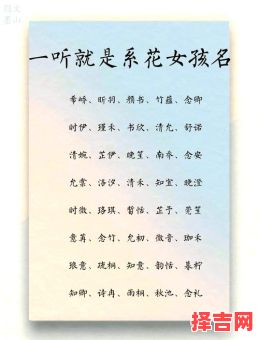 一听就是系花女孩名
希峤、昕羽、精书、竹蕴、念卿
时伊、瑾禾、书欣、清允、舒诺
清婉、芷伊、晚笙、南乔、念安
允棠、洛汐、清禾、知宜、晚澄
时微、珞琪、暂恬、芷于、莞笙
意苒、念竹、允初、微音、珈禾
琅意、琉桐、知意、韵恬、暮柠
知卿、诗冉、雨桐、秋池、念礼
择吉网